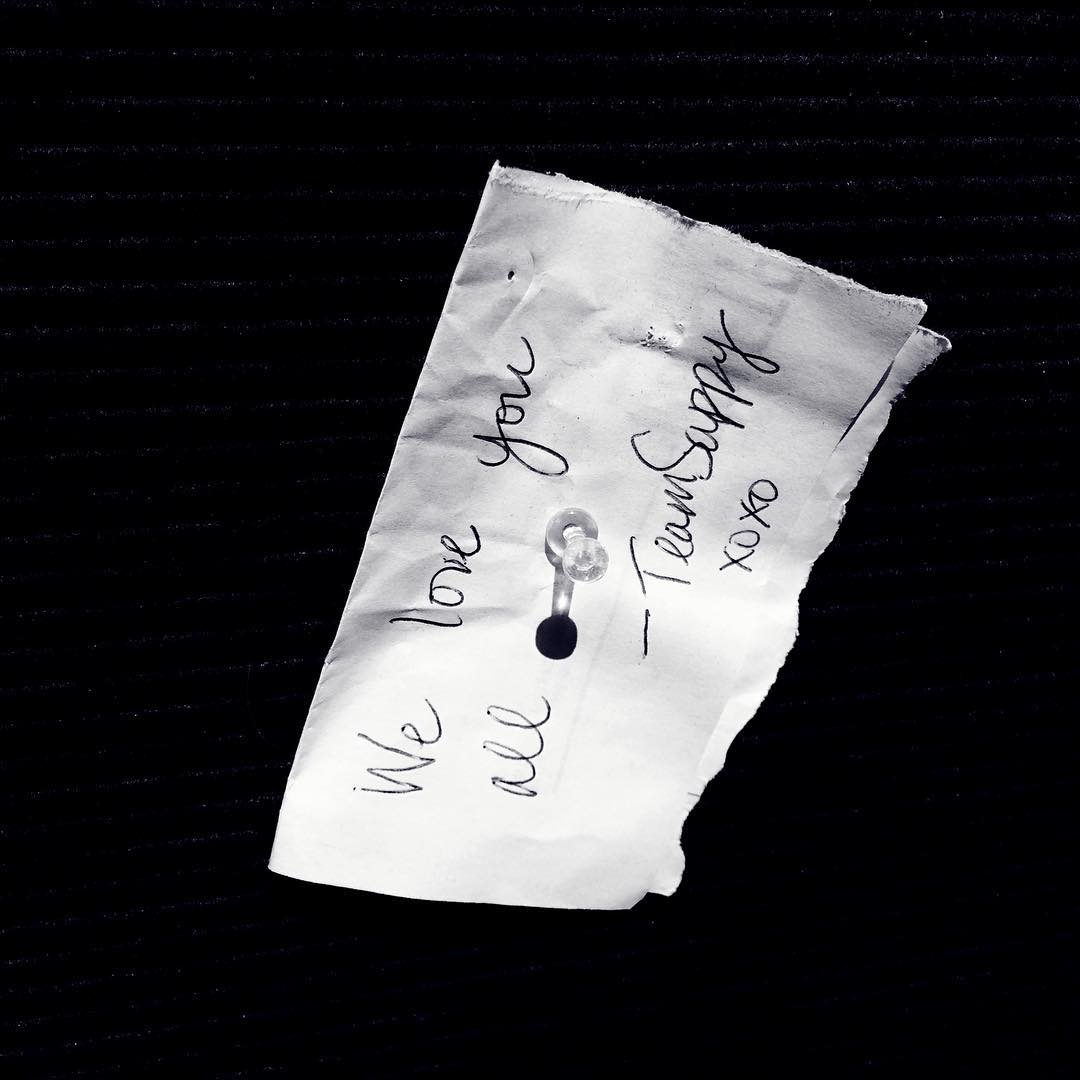 We love you
all.
—TeamSappy
xoxo